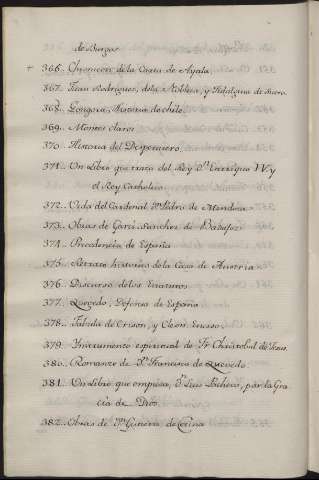 de Burgos
+ 366.. Chronicon de la Casa de Ayala
367.. Juan Rodriguez, de la Nobleza, y Hidalguia de
368.. Gongora, Historia de chile
369.. Montes claros
370.. Historia del Despensero
371.. Un Libro que trata del Rey Dn. Enrrique IV y
el Rey Catholico
372.. Vida del Cardenal Dn. Pedro de Mendoza
373.. Obras de Garci Sanchez de Badajoz
374.. Precedencia de España
375.. Retrato historico de la Casa de Austria
376.. Discurso de los
377.. Quevedo, Defensa de España
378.. Fabula de Crison, y Cleon
379.. Instrumento espiritual de Fr. Christobal de
380.. Romance de Dn. Francisco de Quevedo
381.. Un Libro que empieza, Dn. Luis Pacheco, por la Gra
cia de Dios
382.. Obras de